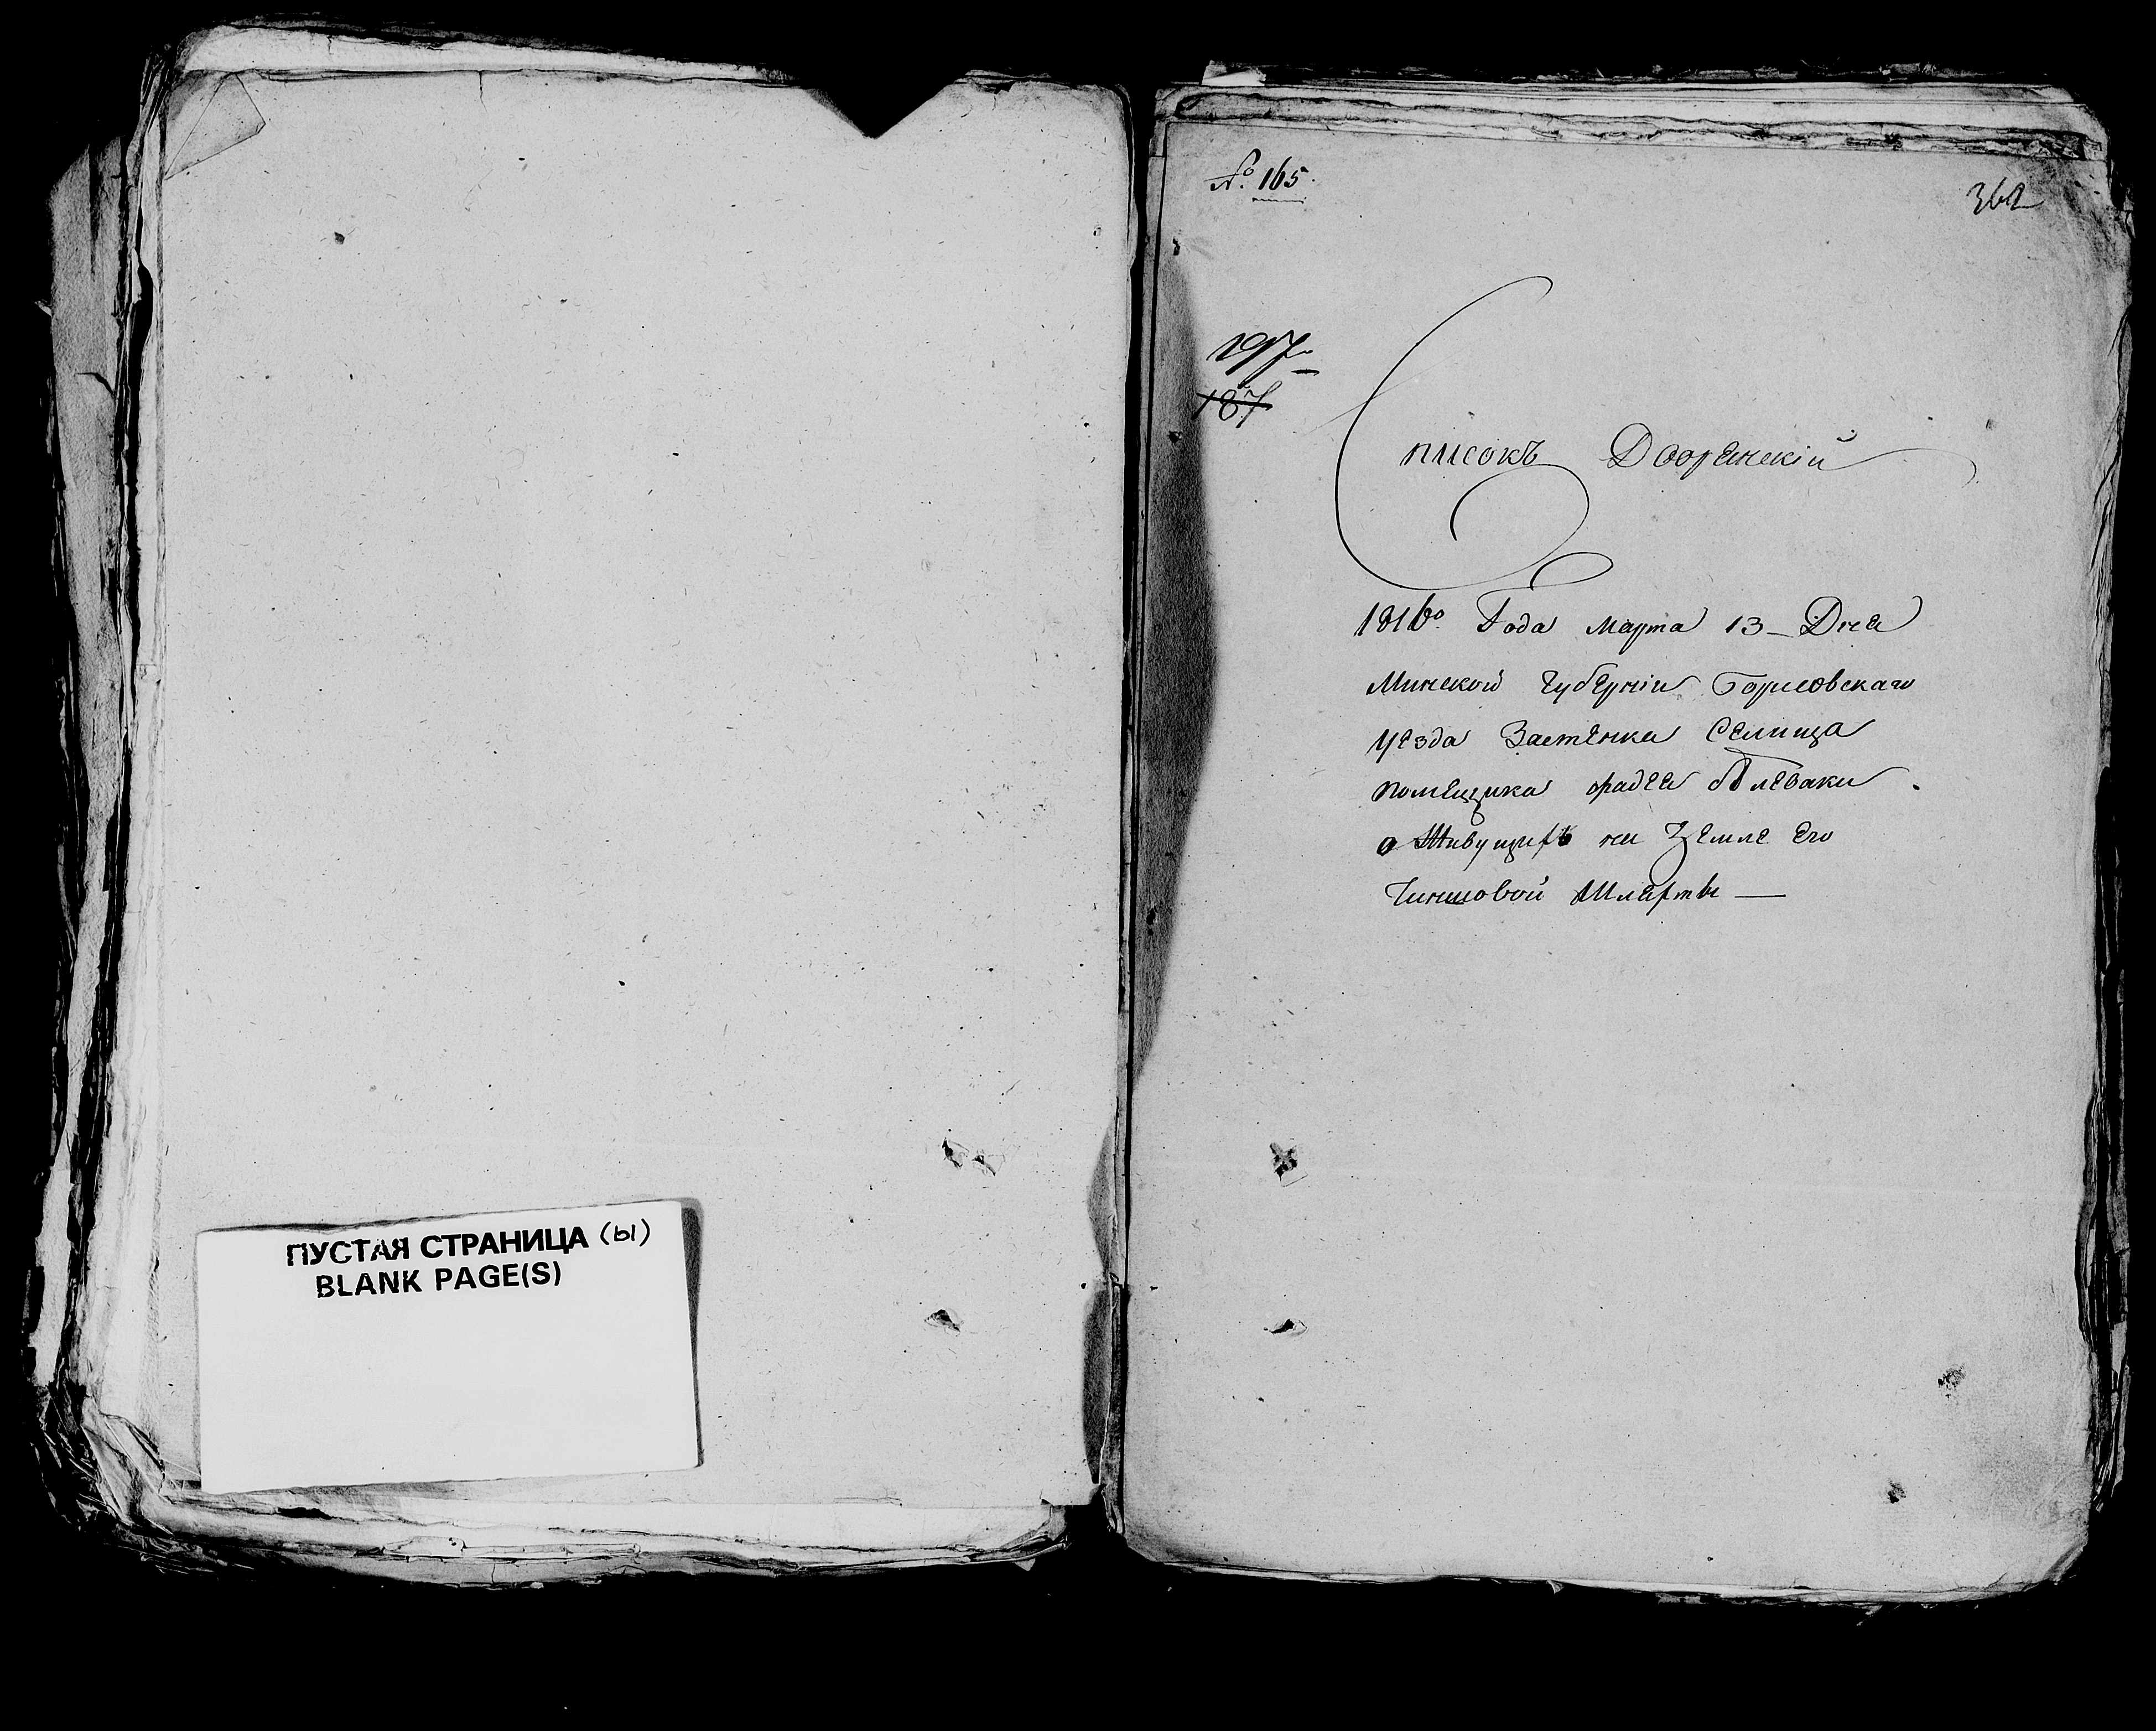 ПУСТАЯ СТРАНИЦА (ы)
BLANK PAGE(S)
№ 165.
362
197
187
Списокъ Дворянскій
1816го Года Марта 13 – Дня
Минской Губерніи Борисовскаго
уезда Застенка Селища
помещика
о Живущихъ на Земле Его
Чиншовой Шляхты —